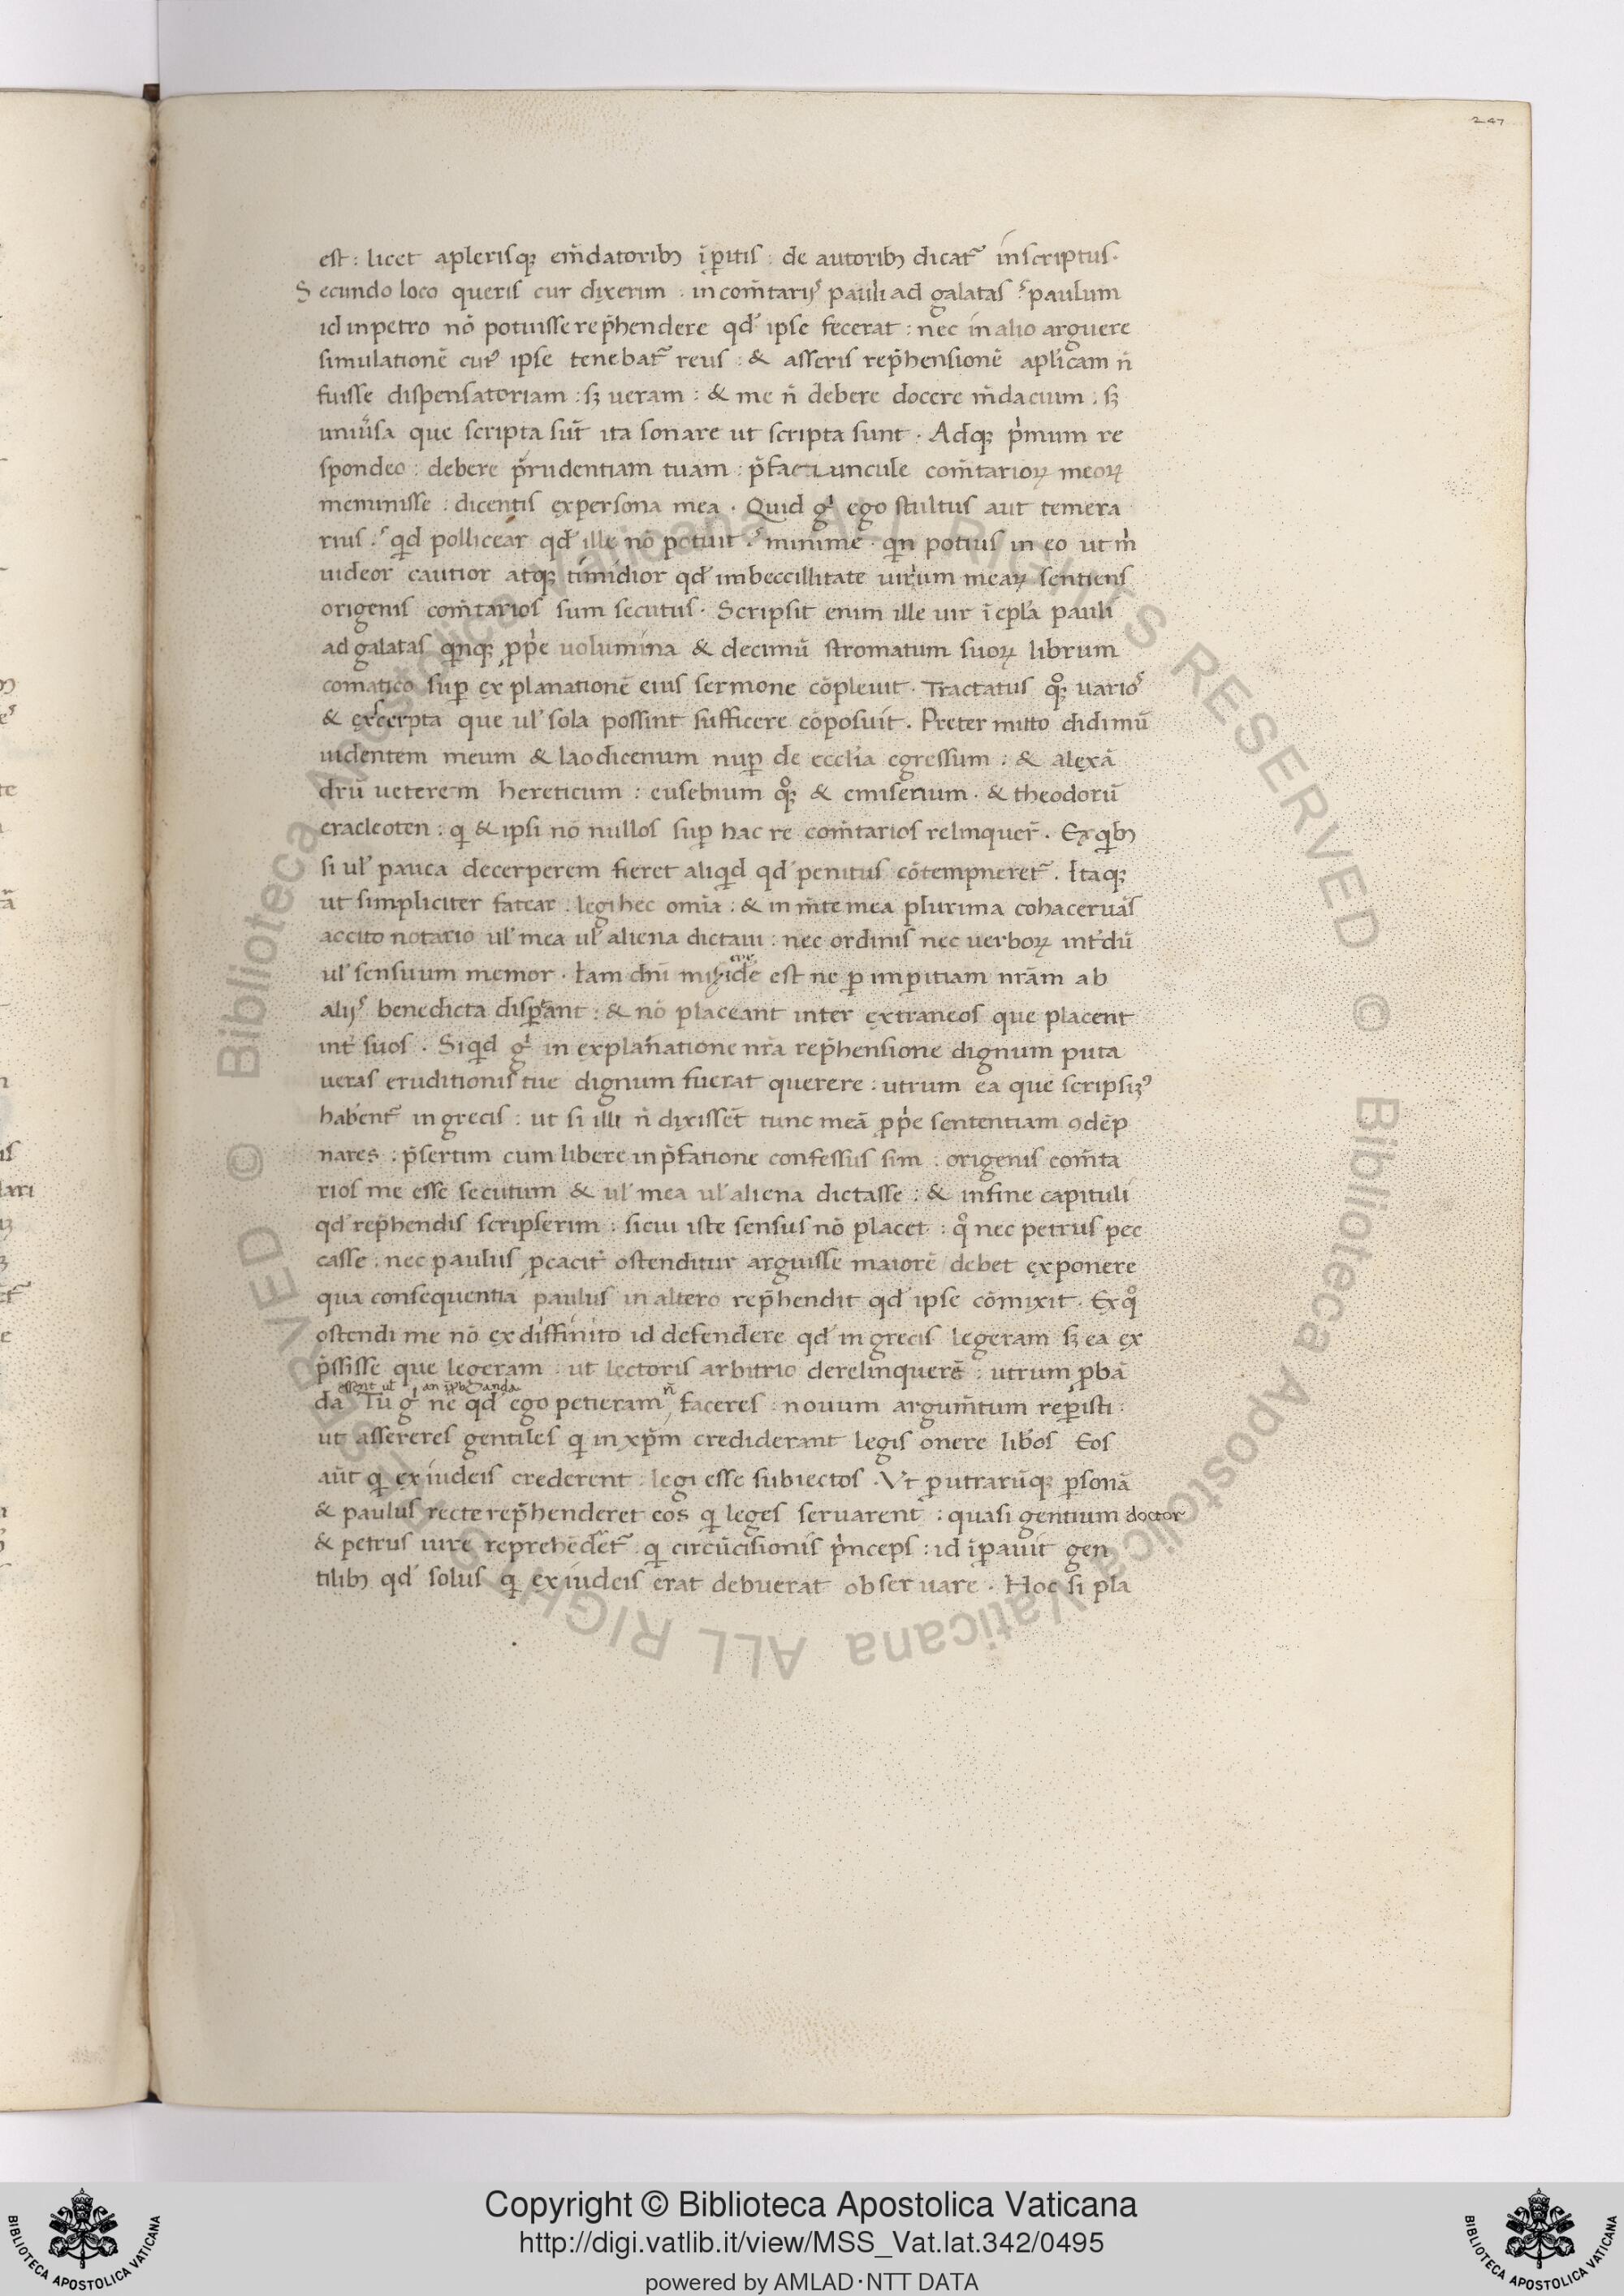 247
est : licet aplerisqꝫ em̄datorib; īꝑitis : de autorib; dicat᷑ inscriptus.
Secundo loco queris cur dixerim . in com̄tarijˢ pauli ad galatas ˢpaulum
id inpetro nō potuisse rep̄hendere qd' ipse fecerat : nec in alio arguere
simulationē cui᷒ ipse tenebat᷑ reus : & asseris rep̄hensionē apl'icam n̄
fuisse dispensatoriam : sꝫ ueram : & me n̄ debere docere m̄dacium : sꝫ
uniu͛sa que scripta sūt ita sonare ut scripta sunt . Adqꝫ pͥmum re
spondeo : debere p̄rudentiam tuam : p̄fatiuncule com̄tarioꝝ meoꝝ
meminisse : dicentis expersona mea . Quid gͥ ego stultus aut temera
rius : qͥd pollicear qd' ille nō potuit : minime . qͥn potius in eo ut m̓
uideor cautior atqꝫ timidior qd' imbeccillitate uirium meaꝝ sentiens
origenis com̄tarios sum secutus . Scripsit enim ille uir ī epl'a pauli
ad galatas qͥnqꝫ ꝓpͥe uolumina & decimū stromatum suoꝝ librum
comatico suꝑ explanationē eius sermone cōpleuit . Tractatus qͦꝫ uarioˢ
& excerpta que ul' sola possint sufficere cōposuit . Preter mitto didimū
uidentem meum & laodicenum nuꝑ de eccl'ia egressum : & alexā
drū ueterem hereticum : eusebium qͦꝫ & emisenum . & theodorū
eracleoten : qͥ & ipsi nō nullos suꝑ hac re com̄tarios relinquer̄ . Ex qͥb;
si ul' pauca decerperem fieret aliqͥd qd' penitus cōtempneret᷑ . Itaqꝫ
ut simpliciter fatear . legi hec omīa : & in m̄te mea plurima cohaceruās
accito notario ul' mea ul' aliena dictaui : nec ordinis nec uerboꝝ int̓dū
ul' sensuum memor . Iam dn̄i mis̄icdie est ne ꝑ imꝑitiam nr̄am ab
alijˢ benedicta disꝑeant : & nō placeant inter extraneos que placent
int̓ suos . Siqͥd gͥ in explanatione nr̄a rep̄hensione dignum puta
ueras eruditionis tue dignum fuerat querere : utrum ea que scripsim᷒
habent᷑ in grecis : ut si illi n̄ dixisset̄ tunc meā ꝓpͥe sententiam ꝯdēp
nares : p̄sertim cum libere in p̄fatione confessus sim : origenis com̄ta
rios me esse secutum & ul' mea ul' aliena dictasse : & infine capituli
qd' rep̄hendis scripserim : sicui iste sensus nō placet : qͦ nec petrus pec
casse . nec paulus ꝓcacit̓ ostenditur arguisse maiorē debet exponere
qua consequentia paulus in altero rep̄hendit qd' ipse cōmixit . Ex qͦ
ostendi me nō ex diffinito id defendere qd' in grecis legeram sꝫ ea ex
p̄ssisse que legeram : ut lectoris arbitrio derelinquerē : utrum ꝓbā
essent ul' an īꝓbanda
da Tu gͥ ne qd' ego petieram n̄ faceres : nouum argum̄tum reꝑisti :
ut assereres gentiles qͥ in xp̄m crediderant legis onere lib̓os Eos
aūt qͥ ex iudeis crederent : legi esse subiectos . Vt ꝑ utrarūqꝫ ꝑsonā
& paulus recte rep̄henderet eos qͥ leges seruarent : quasi gentium doctor
& petrus iure reprehēdēt᷑ . qͥ circūcisionis pͥnceps : id īꝑauit gen
tilib; qd' solus qͥ ex iudeis erat debuerat obseruare . Hoc si pla
© Biblioteca Apostolica Vaticana ALL RIGHTS RESERVED © Biblioteca Apostolica Vaticana ALL RIGHTS RESERVED
Copyright © Biblioteca Apostolica Vaticana
http://digi.vatlib.it/view/MSS_Vat.lat.342/0495
powered by AMLAD·NTT DATA
BIBLIOTECA APOSTOLICA VATICANA
BIBLIOTECA APOSTOLICA VATICANA